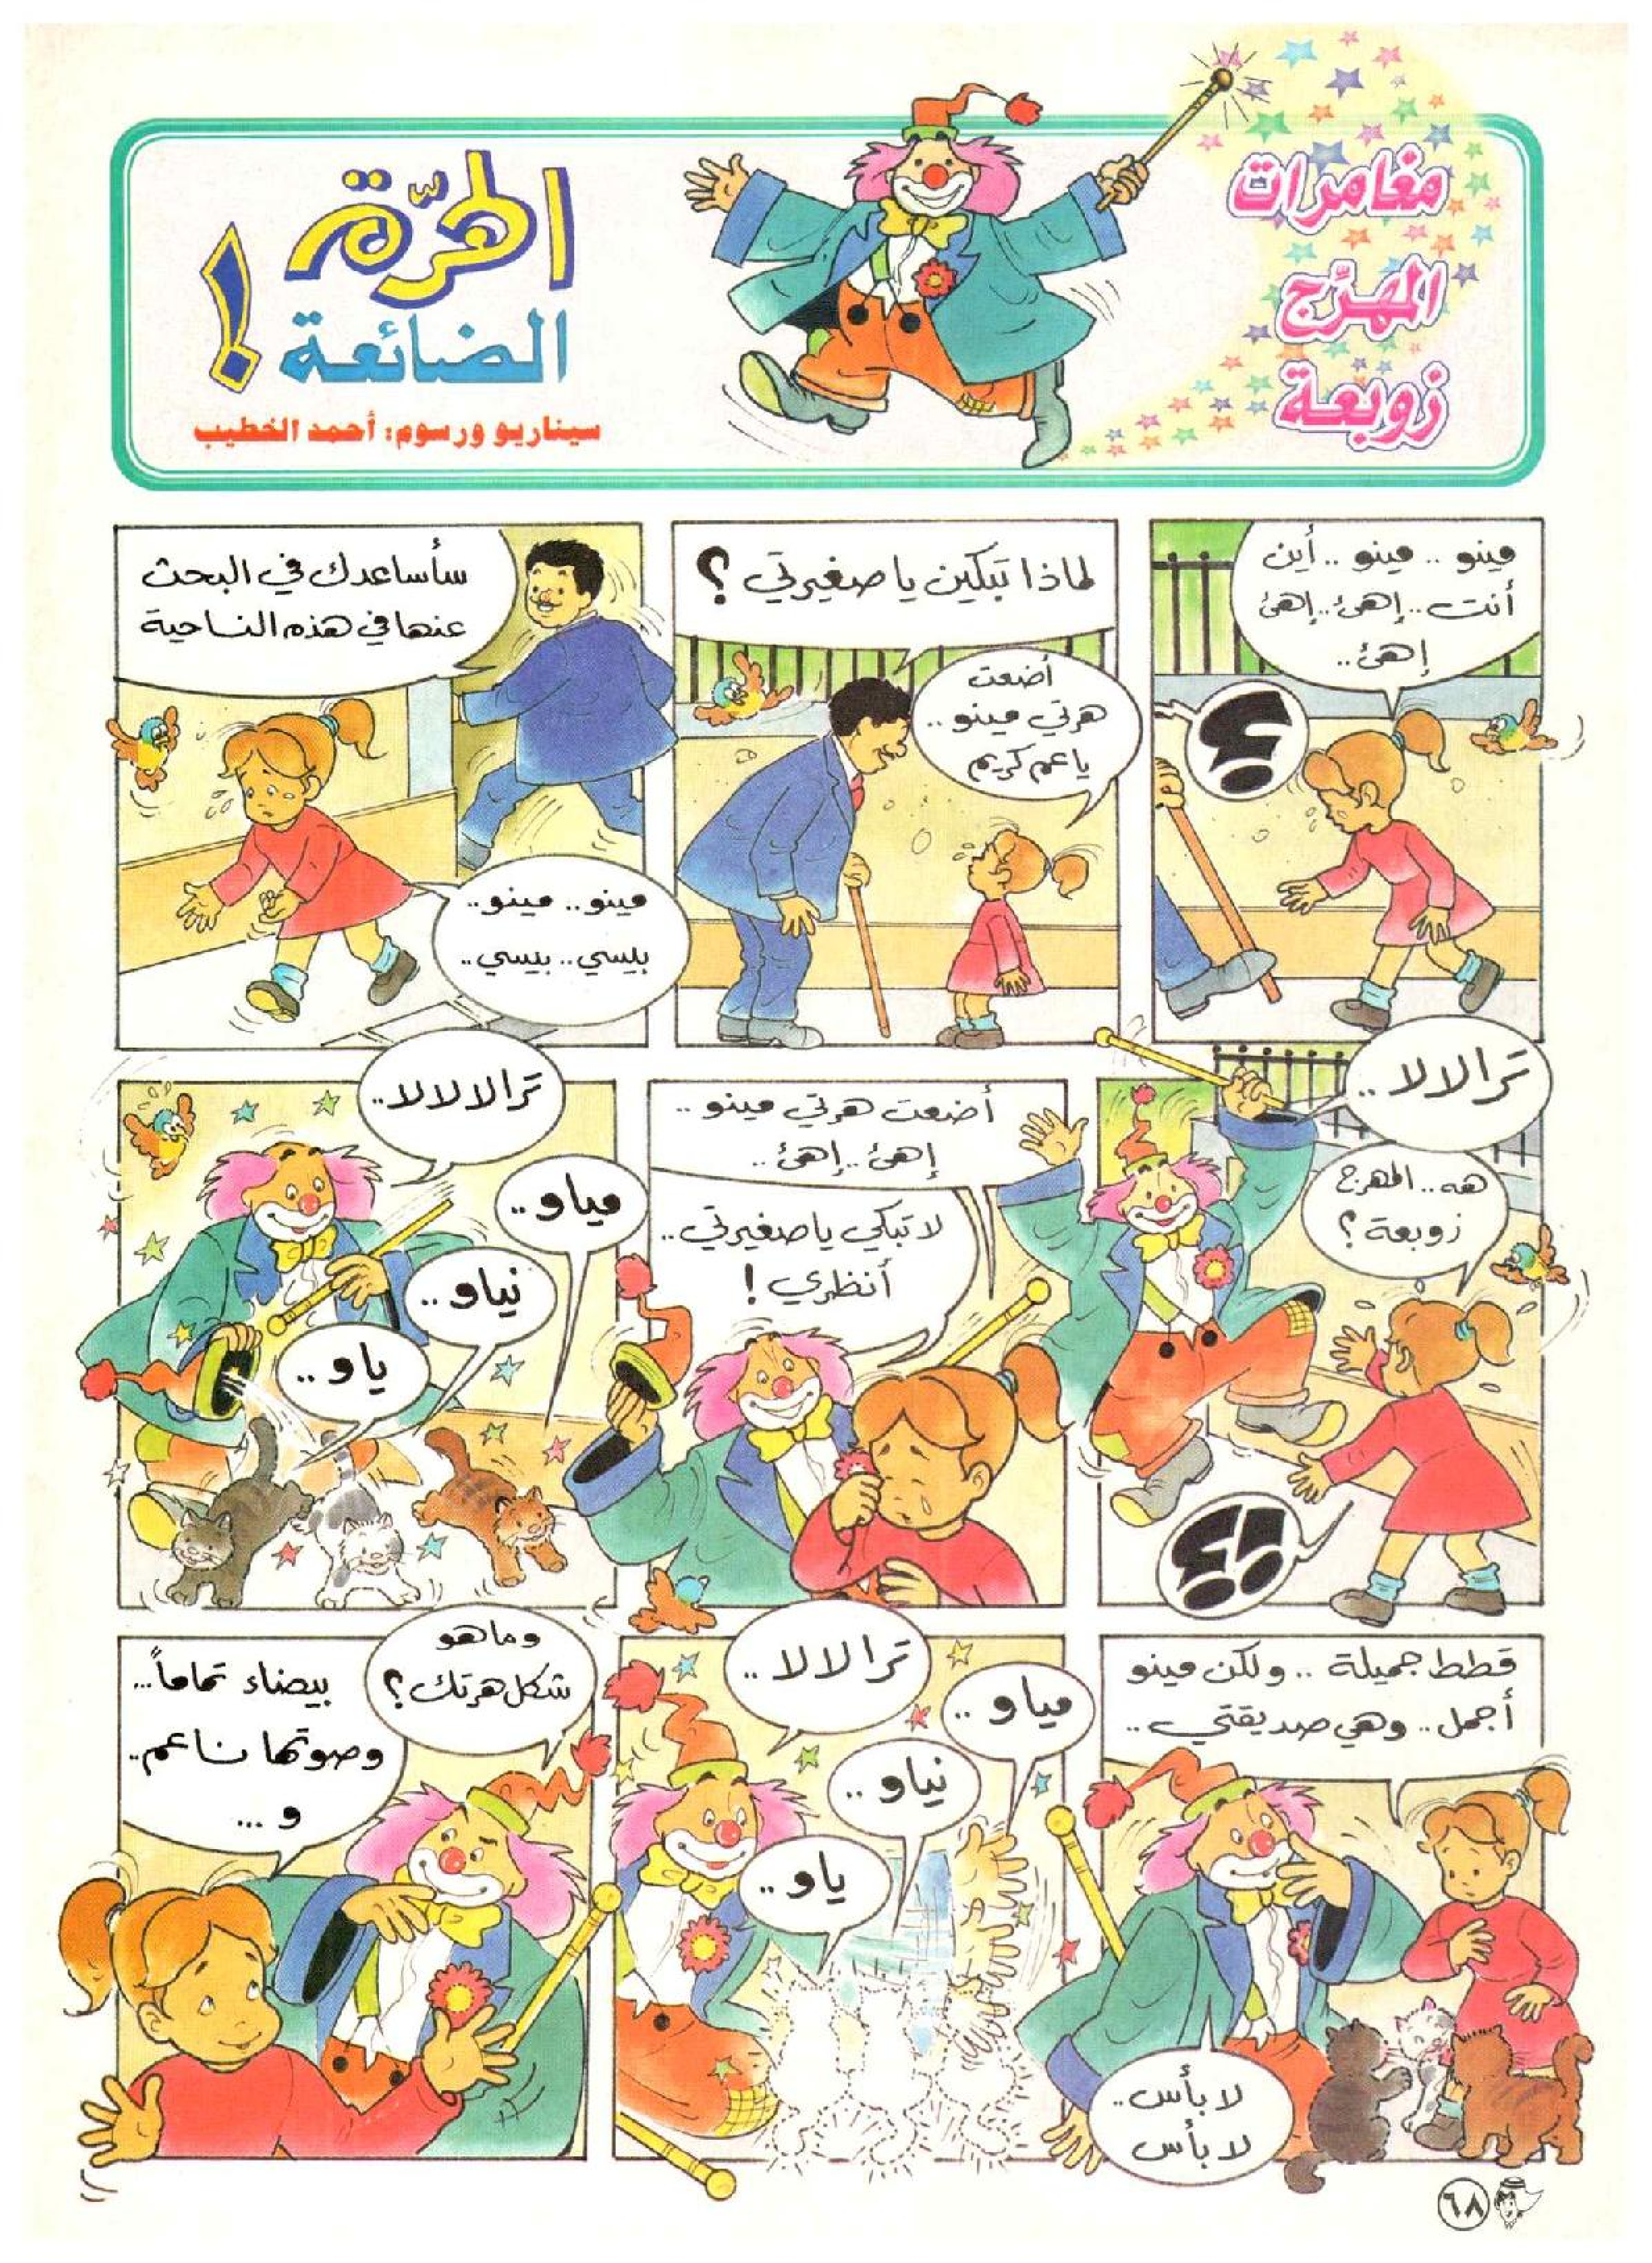 مغامرات
المهرّج
زوبعة
الهرّة
الضائعة !
سيناريو ورسوم: أحمد الخطيب
مينو .. مينو .. أين
أنت .. إهئ .. إهئ
إهئ ..
؟!
لماذا تبكين يا صغيرتي ؟
أضعت
هرتي مينو ..
يا عم كريم
سأساعدك في البحث
عنها في هذه الناحية
مينو .. مينو ..
بيسي .. بيسي ..
ترالالا ..
هه .. المهرج
زوبعة ؟
؟!
أضعت هرتي مينو ..
إهئ .. إهئ ..
لا تبكي يا صغيرتي ..
أنظري !
ترالالالا ..
مياو ..
نياو ..
ياو ..
قطط جميلة .. ولكن مينو
أجمل .. وهي صديقتي ..
لا بأس ..
لا بأس
ترالالا ..
مياو ..
نياو ..
ياو ..
وما هو
شكل هرتك ؟
بيضاء تماماً ...
وصوتها ناعم ..
و ...
٦٨